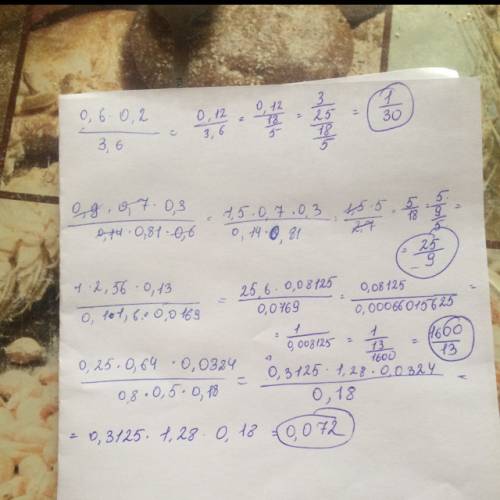 0,6 · 0,2 / 3,6 = 0,12 / 3,6 = 0,12 / 18/5 = 3/25 / 18/5 = 1/30
0,9 · 0,7 · 0,3 / 0,14 · 0,81 · 0,6 = 1,5 · 0,7 · 0,3 / 0,14 · 0,81 = 1,5 · 5 / 2,7 = 5/18 = 5 / 9/5 =
= 25/9
1 · 2,56 · 0,13 / 0,1 · 1,6 · 0,0169 = 25,6 · 0,08125 / 0,0769 = 0,08125 / 0,00066015625 =
= 1 / 0,008125 = 1 / 13/1600 = 1600/13
0,25 · 0,64 · 0,0324 / 0,8 · 0,5 · 0,18 = 0,3125 · 1,28 · 0,0324 / 0,18 =
= 0,3125 · 1,28 · 0,18 = 0,072